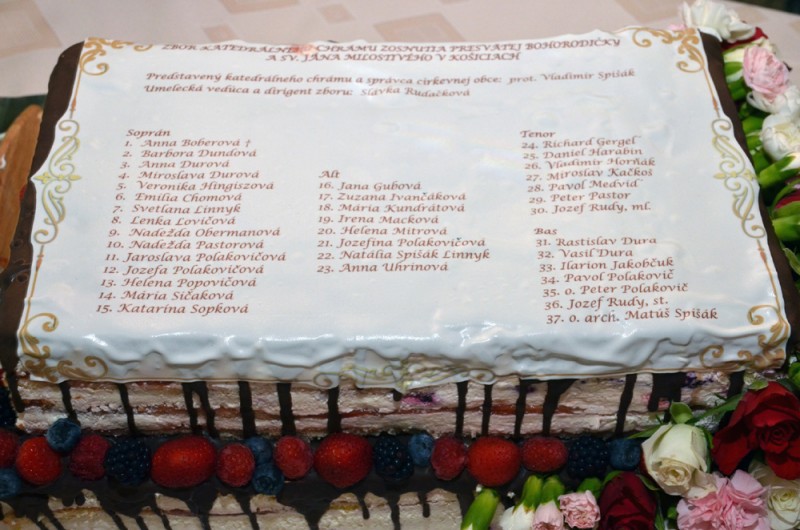 ZBOR KATEDRÁLNEHO CHRÁMU ZOSNUTIA PRESVÄTEJ BOHORODIČKY
A SV. JÁNA MILOSTIVÉHO V KOŠICIACH
Predstavený katedrálneho chrámu a správca cirkevnej obce: prot. Vladimír Spišák
Umelecká vedúca a dirigent zboru: Slávka Rudačková
Soprán
1. Anna Boberová †
2. Barbora Dundová
3. Anna Durová
4. Miroslava Durová
5. Veronika Hingiszová
6. Emília Chomová
7. Svetlana Linnyk
8. Lenka Lovičová
9. Nadežda Obermanová
10. Nadežda Pastorová
11. Jaroslava Polakovičová
12. Jozefa Polakovičová
13. Helena Popovičová
14. Mária Sičaková
15. Katarína Sopková
Alt
16. Jana Gubová
17. Zuzana Ivančáková
18. Mária Kundrátová
19. Irena Macková
20. Helena Mitrová
21. Jozefína Polakovičová
22. Natália Spišák Linnyk
23. Anna Uhrinová
Tenor
24. Richard Gergeľ
25. Daniel Harabin
26. Vladimír Horňák
27. Miroslav Kačkoš
28. Pavol Medviď
29. Peter Pastor
30. Jozef Rudy, ml.
Bas
31. Rastislav Dura
32. Vasil Dura
33. Ilarion Jakobčuk
34. Pavol Polakovič
35. o. Peter Polakovič
36. Jozef Rudy, st.
37. o. arch. Matúš Spišák